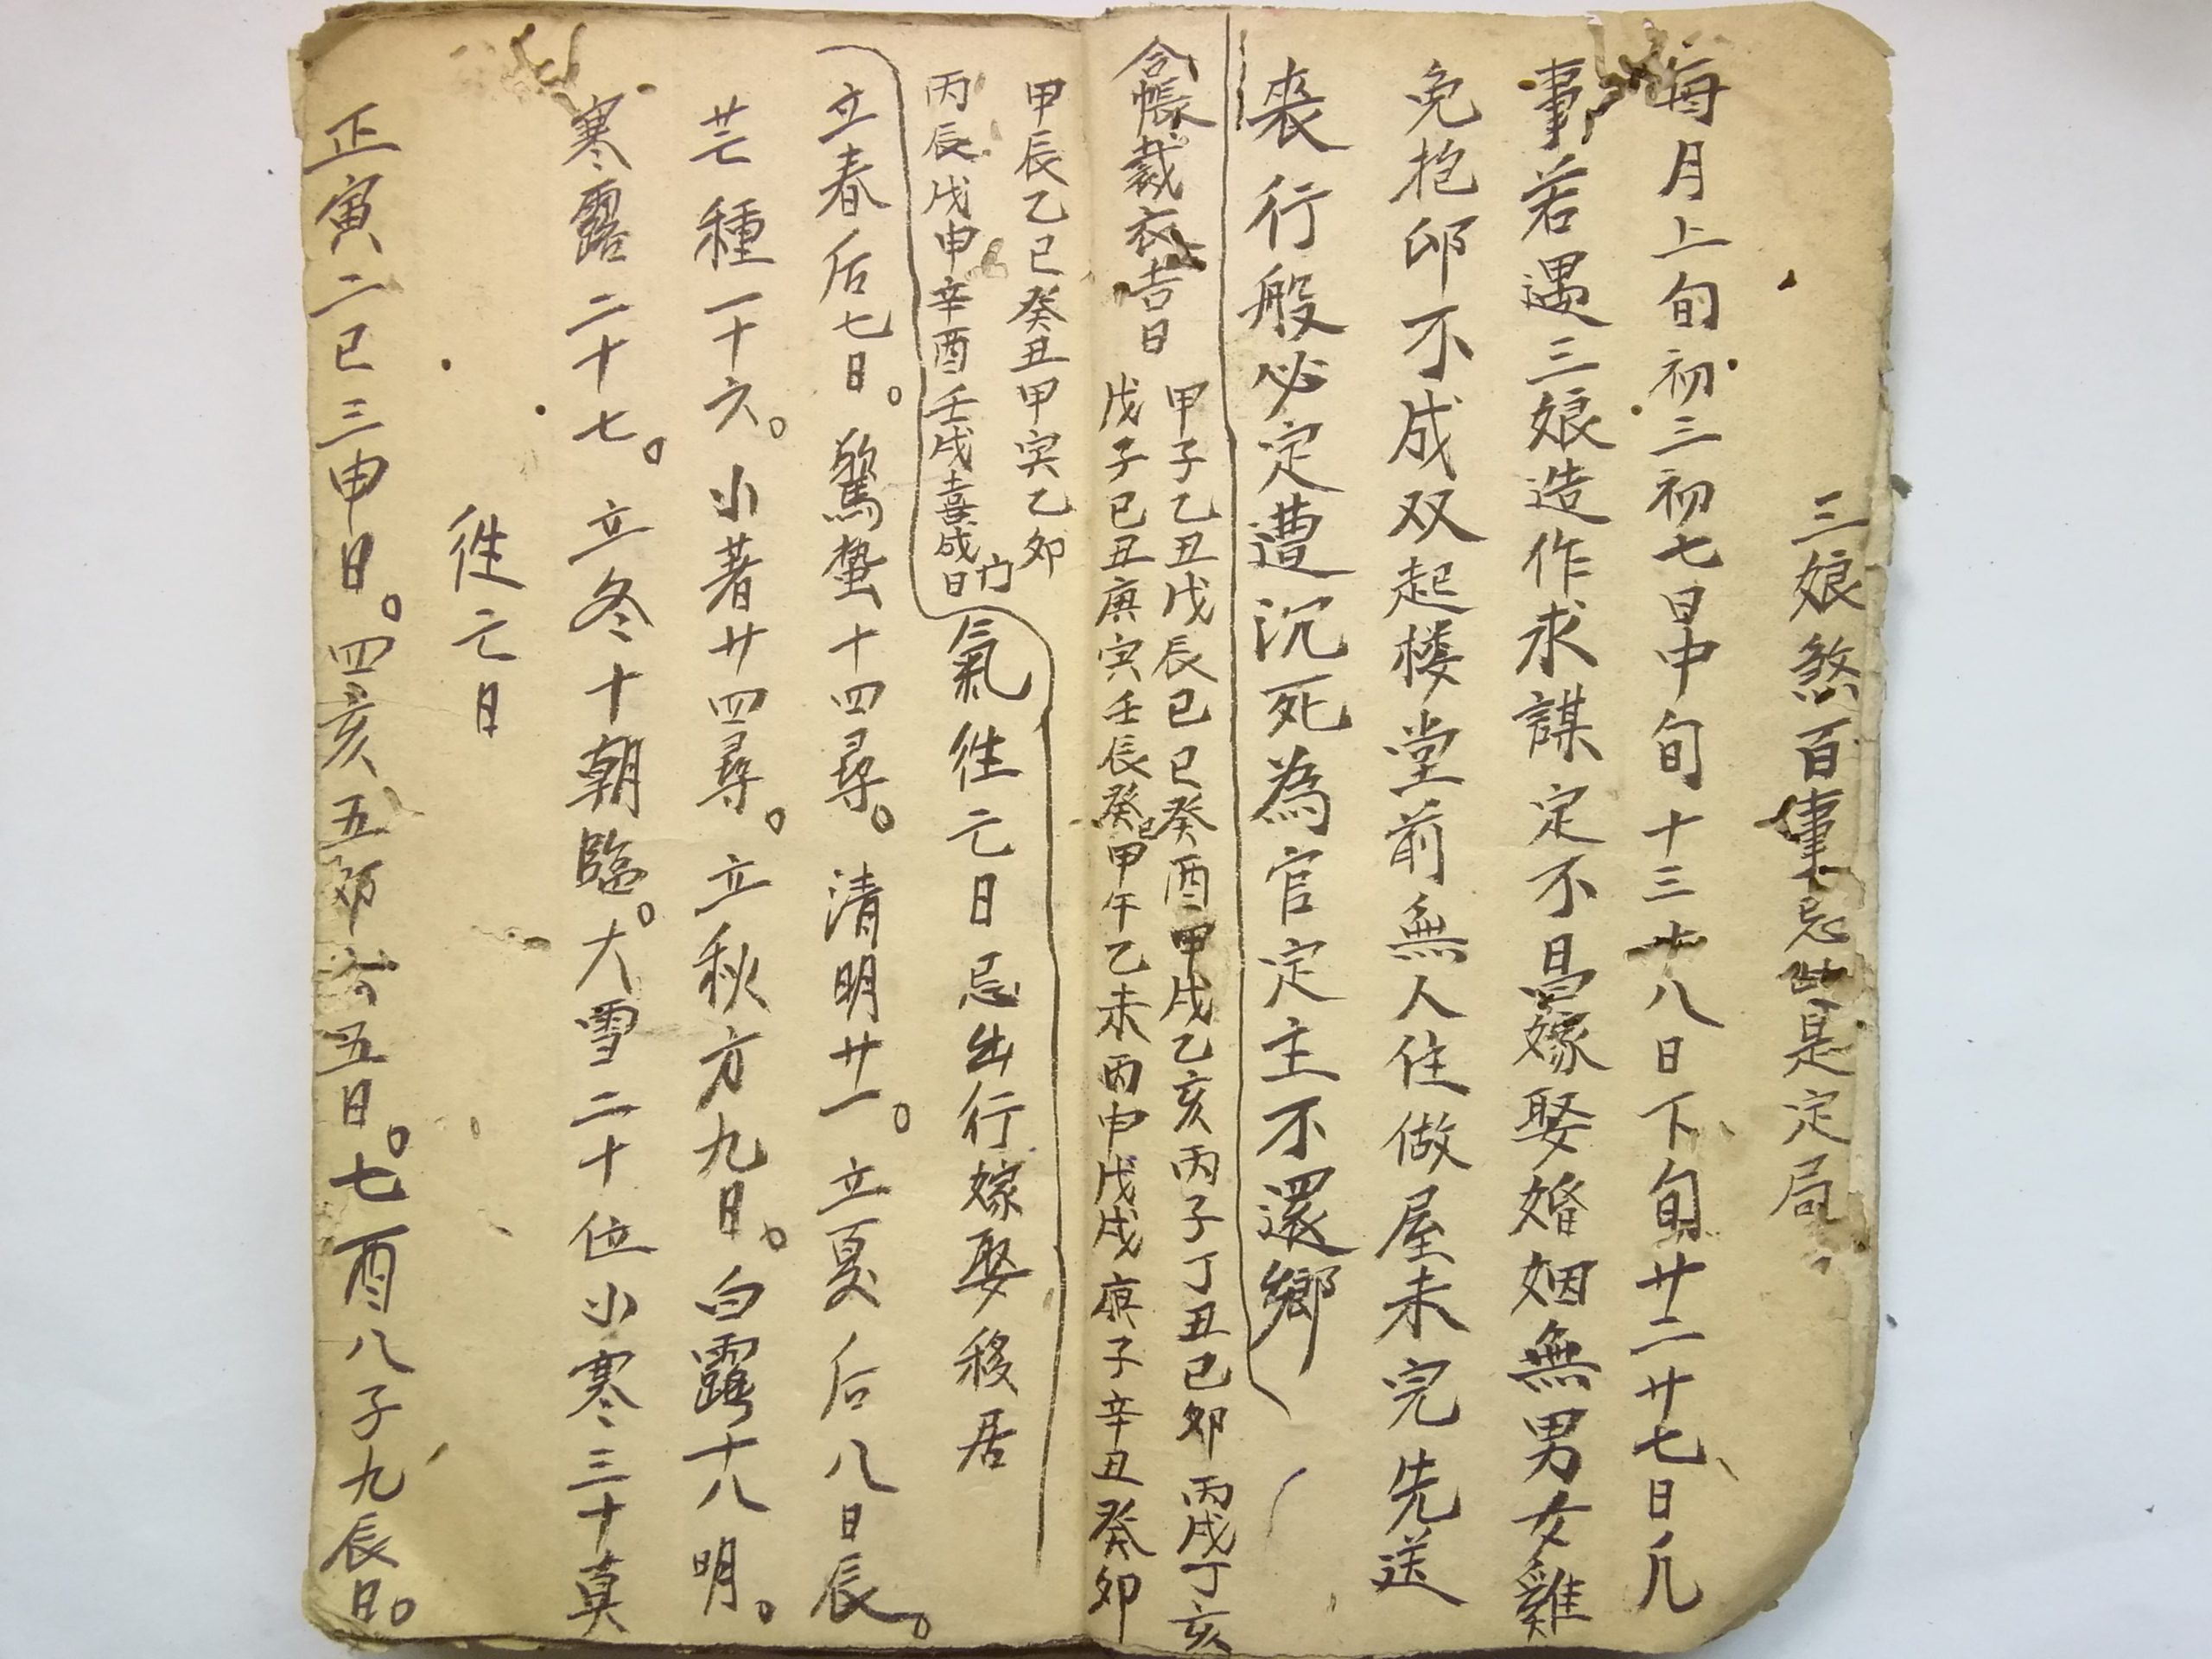 三娘煞百事忌此是定局
每月上旬初三初七日中旬十三十八日下旬廿二廿七日凡
事若遇三娘造作求謀定不昌嫁娶婚姻無男女雞
免抱卵不成双起楼堂前無人住做屋未完先送
喪行般必定遭沉死為官定主不還鄉
合帳裁衣吉日
甲子乙丑戊辰己巳癸酉甲戌乙亥丙子丁丑己卯丙戌丁亥
戊子己丑庚寅壬辰癸巳甲午乙未丙申戊戌庚子辛丑癸卯
甲辰乙巳癸丑甲寅乙卯
丙辰戊申辛酉壬戌喜成日
氣徃亡日忌出行嫁娶移居
立春后七日。驚蟄十四尋。清明廿一。立夏后八日辰。
芒種一十六。小暑廿四尋。立秋方九日。白露十八明。
寒露二十七。立冬十朝臨。大雪二十位小寒三十真
徃亡日
正寅二巳三申日。四亥五卯六五日。七酉八子九辰日。